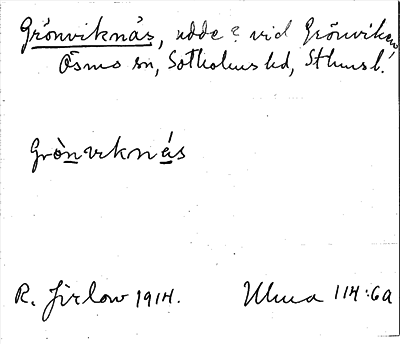 Grönviknäs, udde? vid Grönviken,
Ösmo sn, Sotholms hd, Sthms l.
Grònviknás
R. Jirlow 1914. Ulma 114:6a